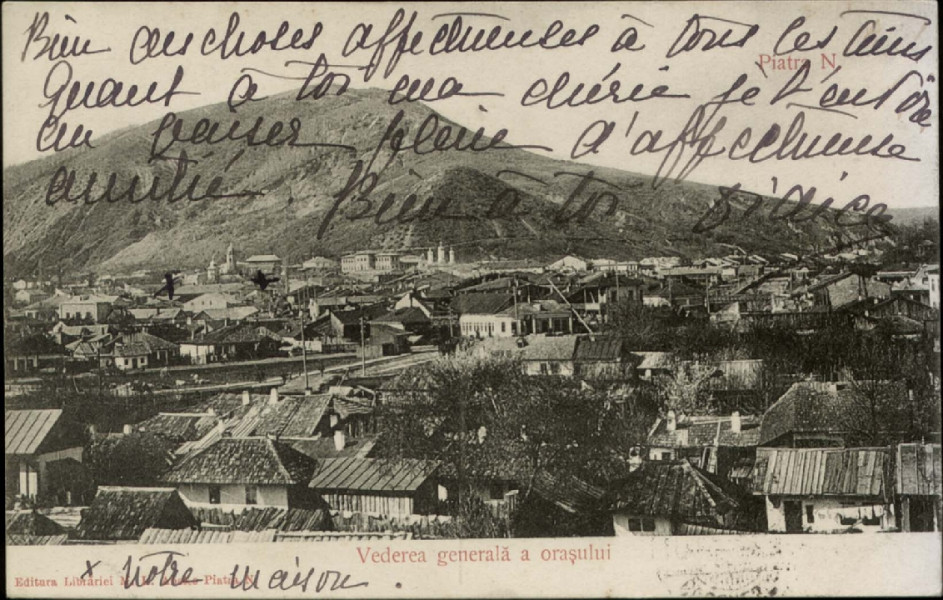 Bien des choses affectueuses à tous les tiens
Piatra N.
Quant à toi ma chérie je t'envoie
un baiser plein d'affectueuse
amitié. Bien à toi
x x
Vederea generală a orașului
x Notre maison.
Editura Librăriei Piatra N.